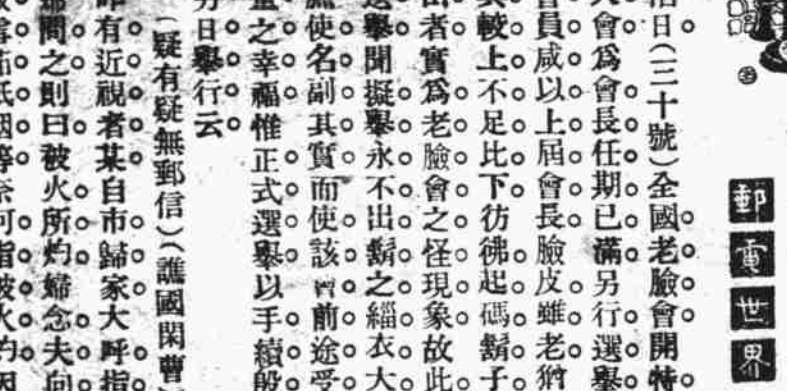 郵電世界
日(三十號)全國老臉會開特
會爲會長任期已滿另行選舉
員咸以上屆會長臉皮雖老猶
較上不足比下彷彿起碼鬍子
者實爲老臉會之怪現象故此
舉聞擬舉永不出鬍之緇衣大
使名副其實而使該會前途受
之幸福惟正式選舉以手續般
日舉行云
(疑有疑無郵信)(譙國閑曹
有近視者某自市歸家大呼指
問之則曰被火所灼婦念夫向
等奈何指被火灼因